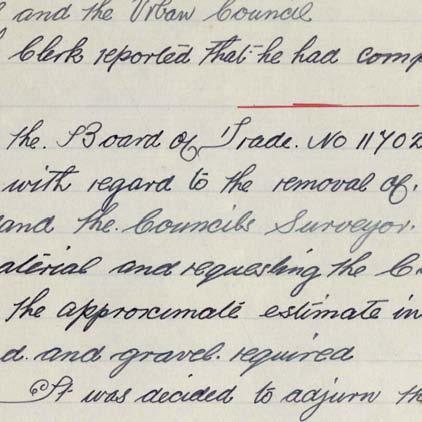 and the Urban Council
Clerk reported that he had comp
the. Board of Trade. No 11702
with regard to the removal of.
and the. Councils Surveyor.
aterial and requesting the C
the approximate estimate in
d. and gravel. required
It was decided to adjurn the